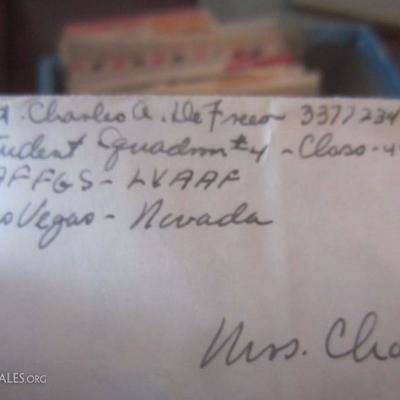 Charles A. De Freese 3377234
Student Squadron #4 - Class - 4
AFFGS - LVAAF
Las Vegas - Nevada
Mrs. Cha
ALES.ORG